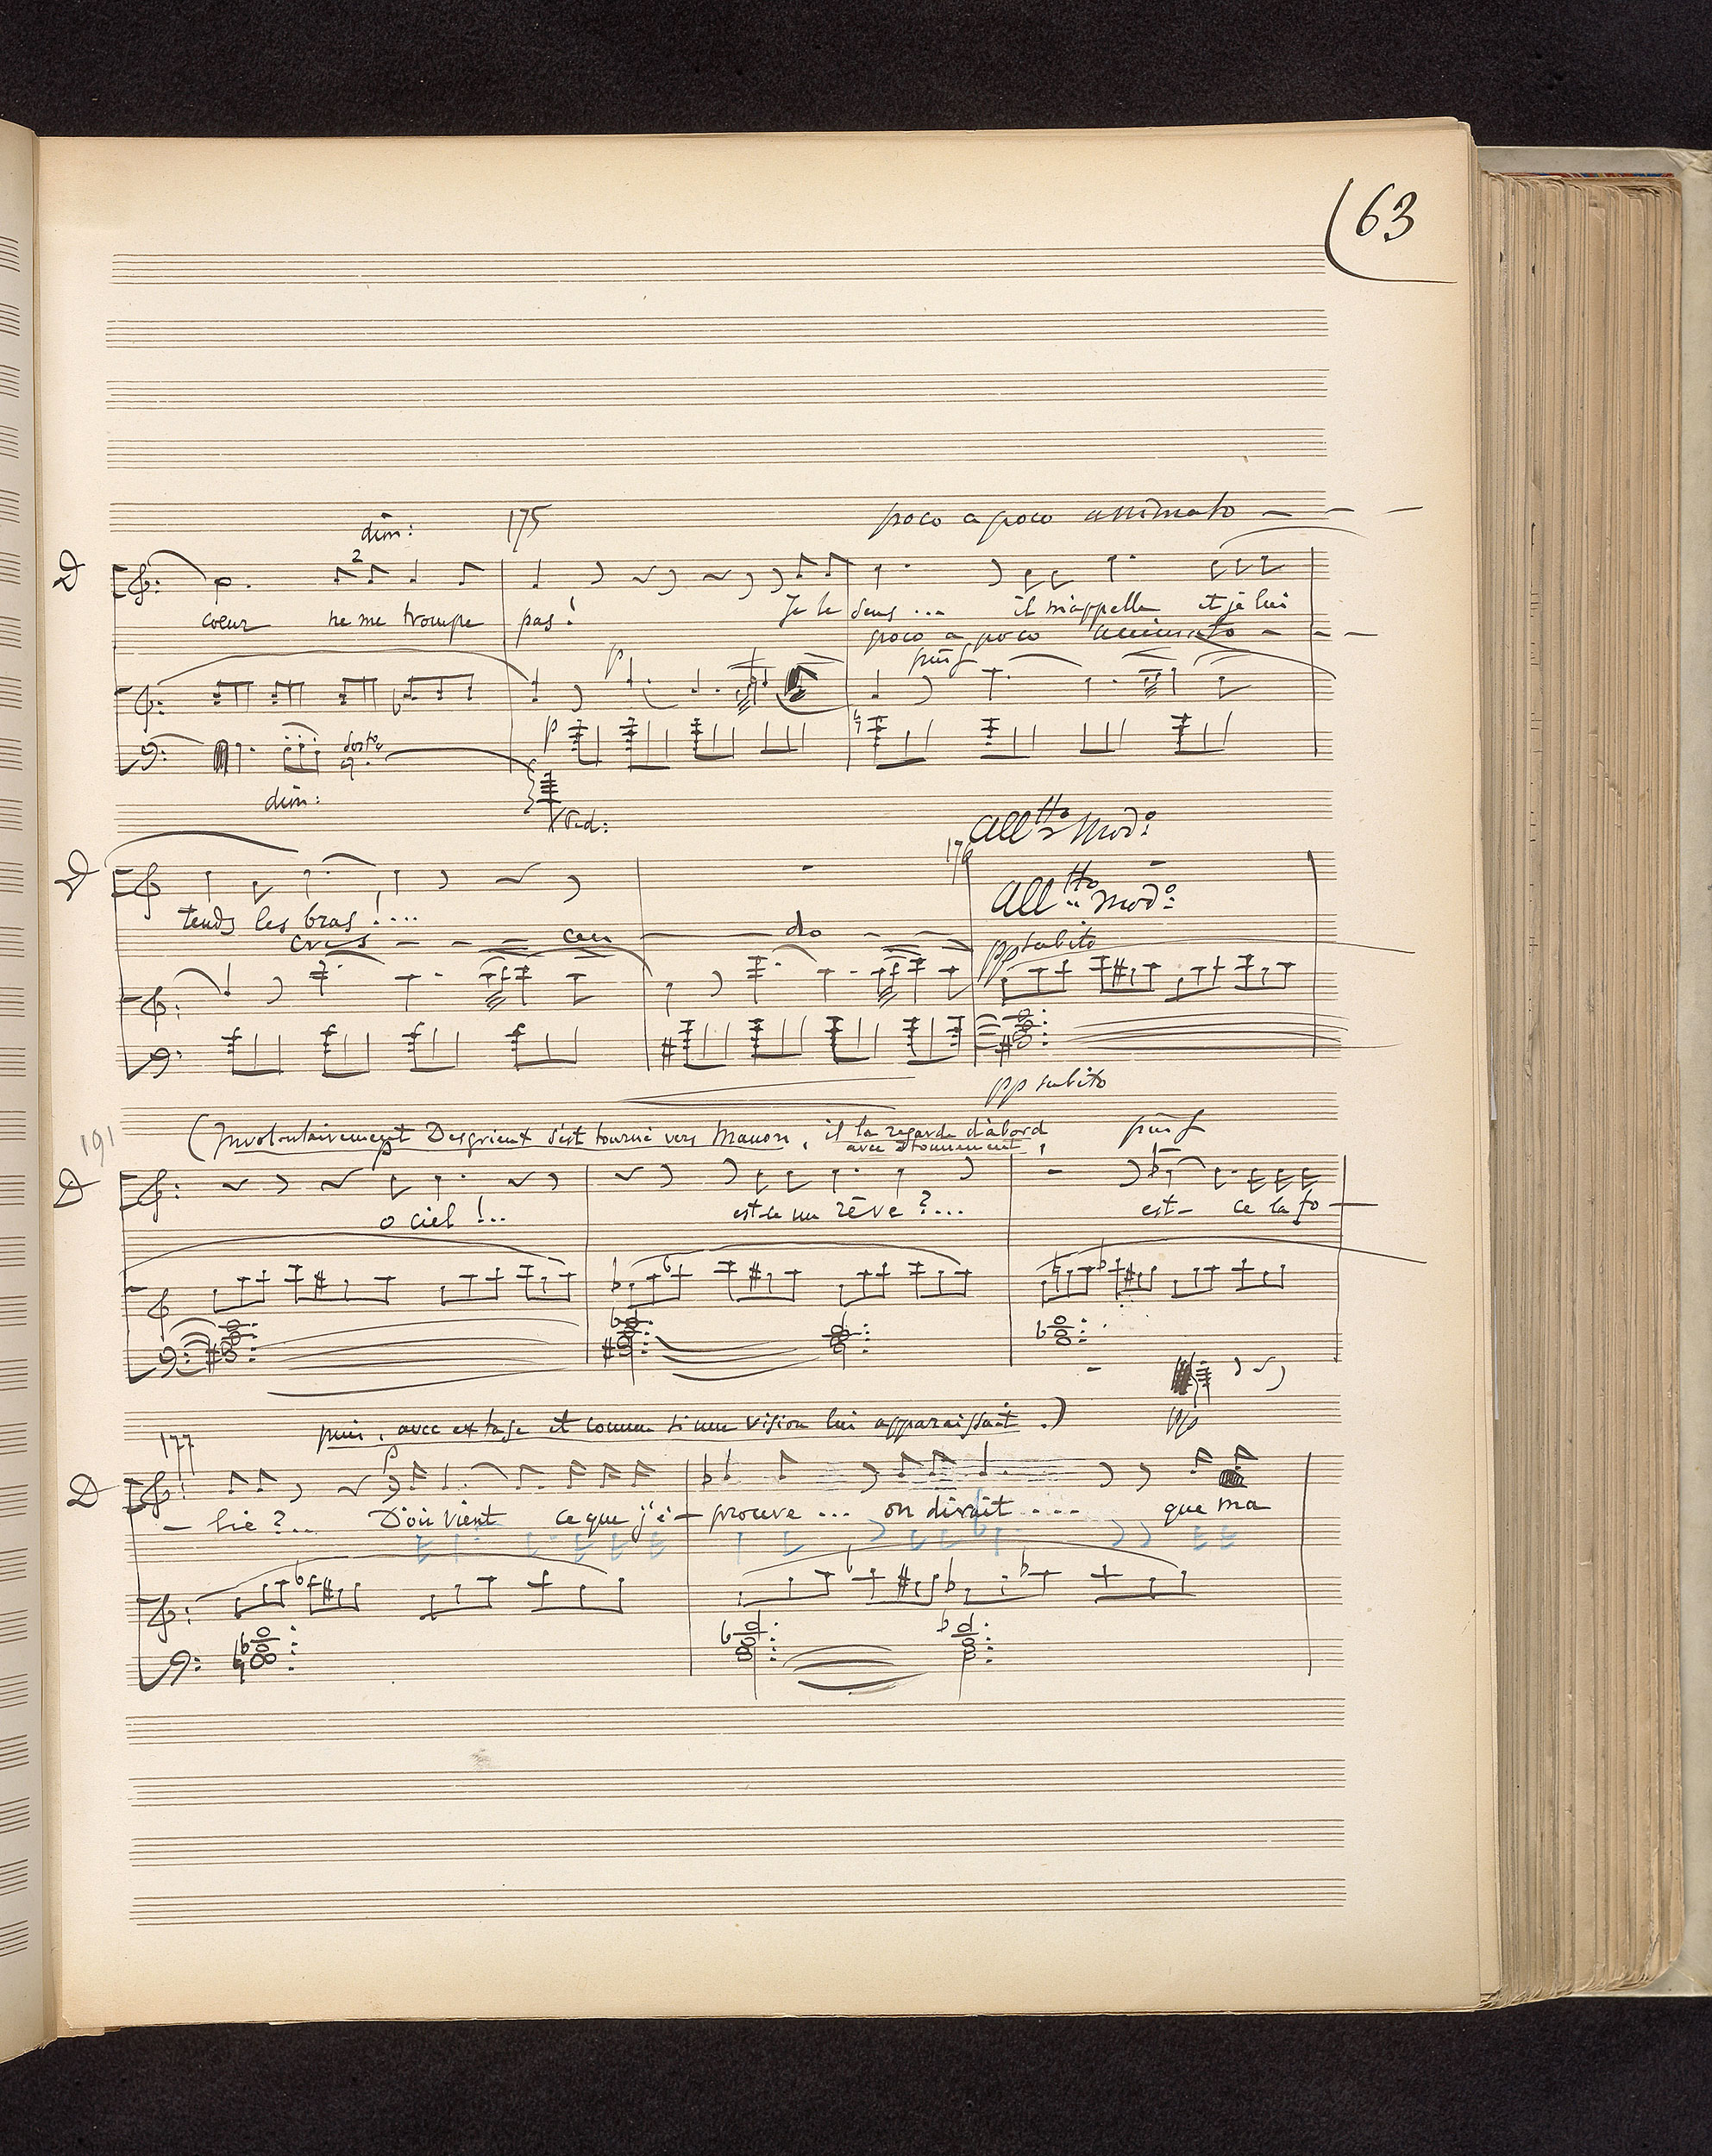 63
dim: 175 poco a poco animato - - -
2
D
cœur ne me trompe pas! Je le sens ... il m'appelle et je lui
poco a poco animato - - -
p più f
p
dim:
Ped:
All.tto Mod.o
176
D
All.tto mod.o
tends les bras!....
cres - - - cen do - -
pp subito
pp subito
191
(Involontairement Desgrieux s'est tourné vers Manon, il la regarde d'abord
avec étonnement, più f
D
o ciel!.. est-ce un rêve?... est- ce la fo -
puis, avec extase et comme si une vision lui apparaissait.) pp
177
p
D
- lie?.. D'où vient ce que j'é - prouve ... on dirait .... que ma